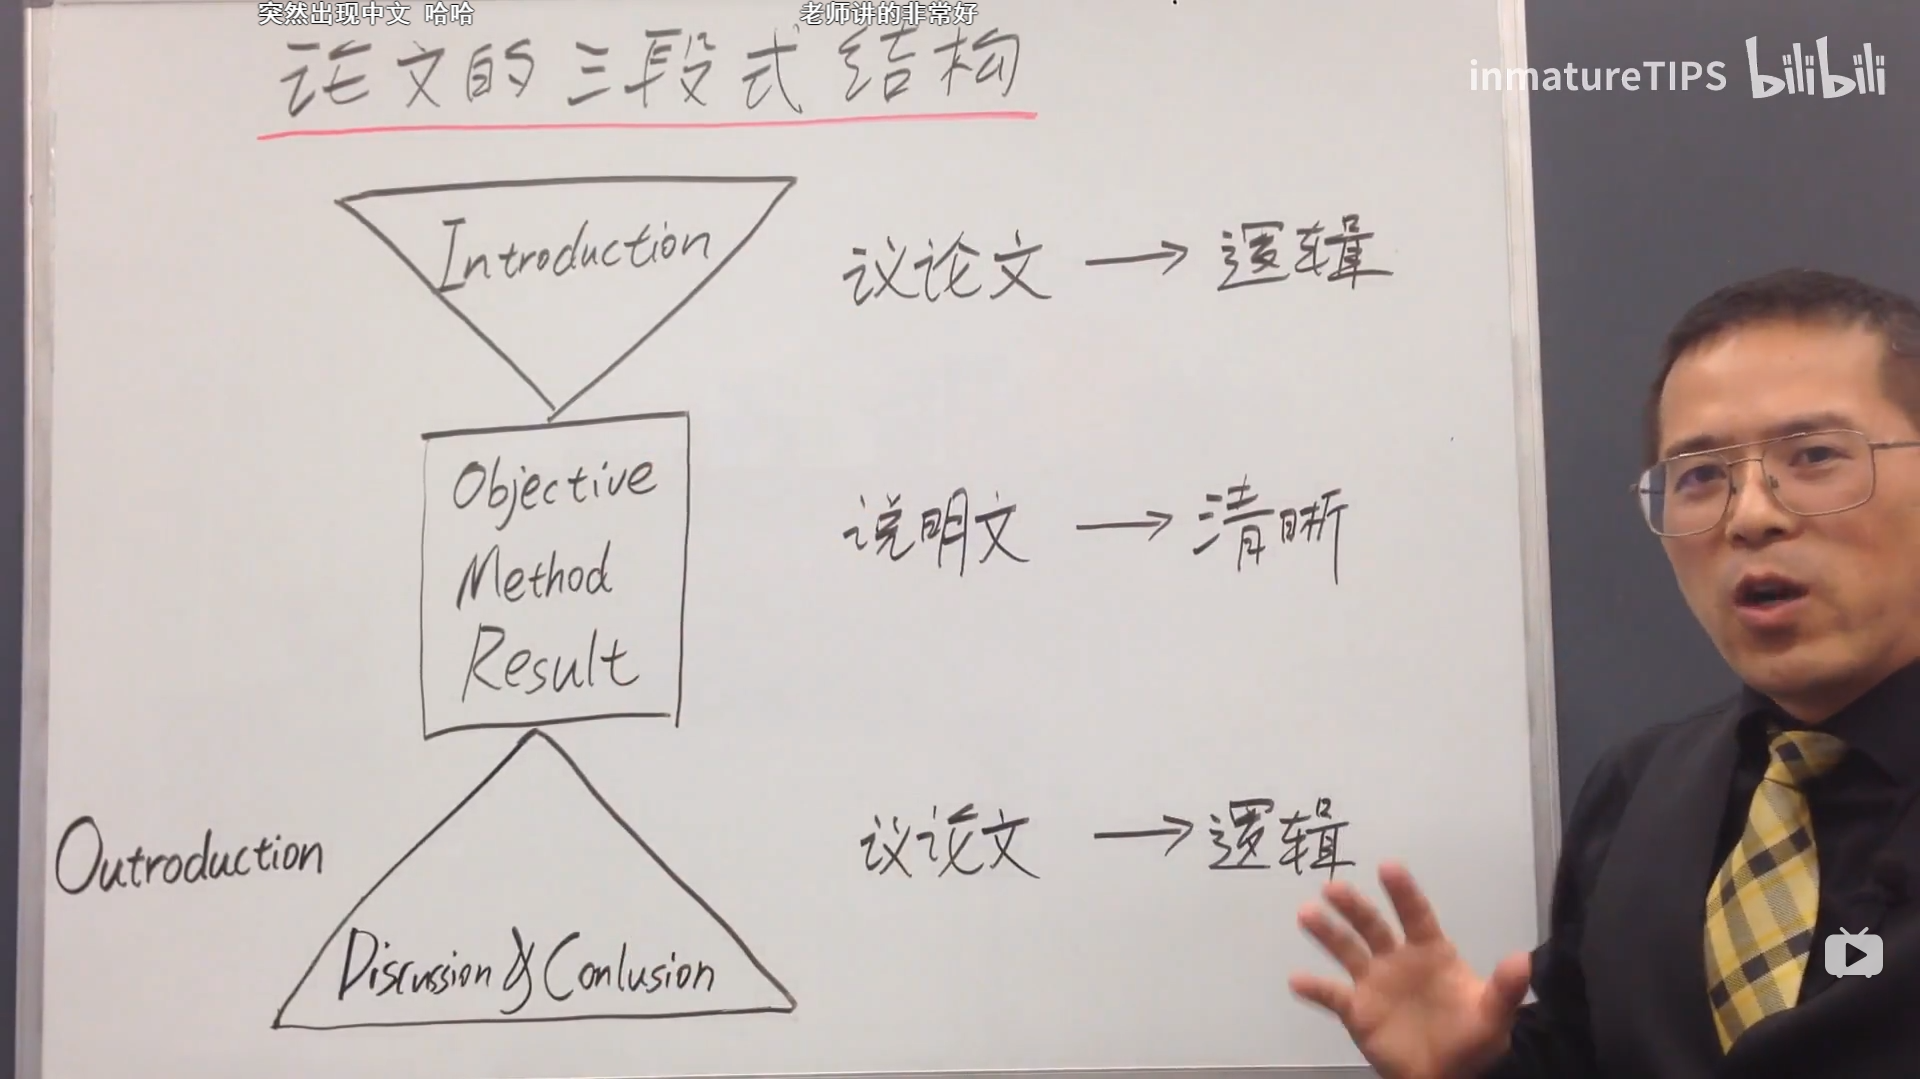 突然出现中文 哈哈
老师讲的非常好
论文的三段式结构
inmatureTIPS bilibili
Introduction
议论文 → 逻辑
Objective
Method
Result
说明文 → 清晰
Outroduction
议论文 → 逻辑
Discussion & Conlusion